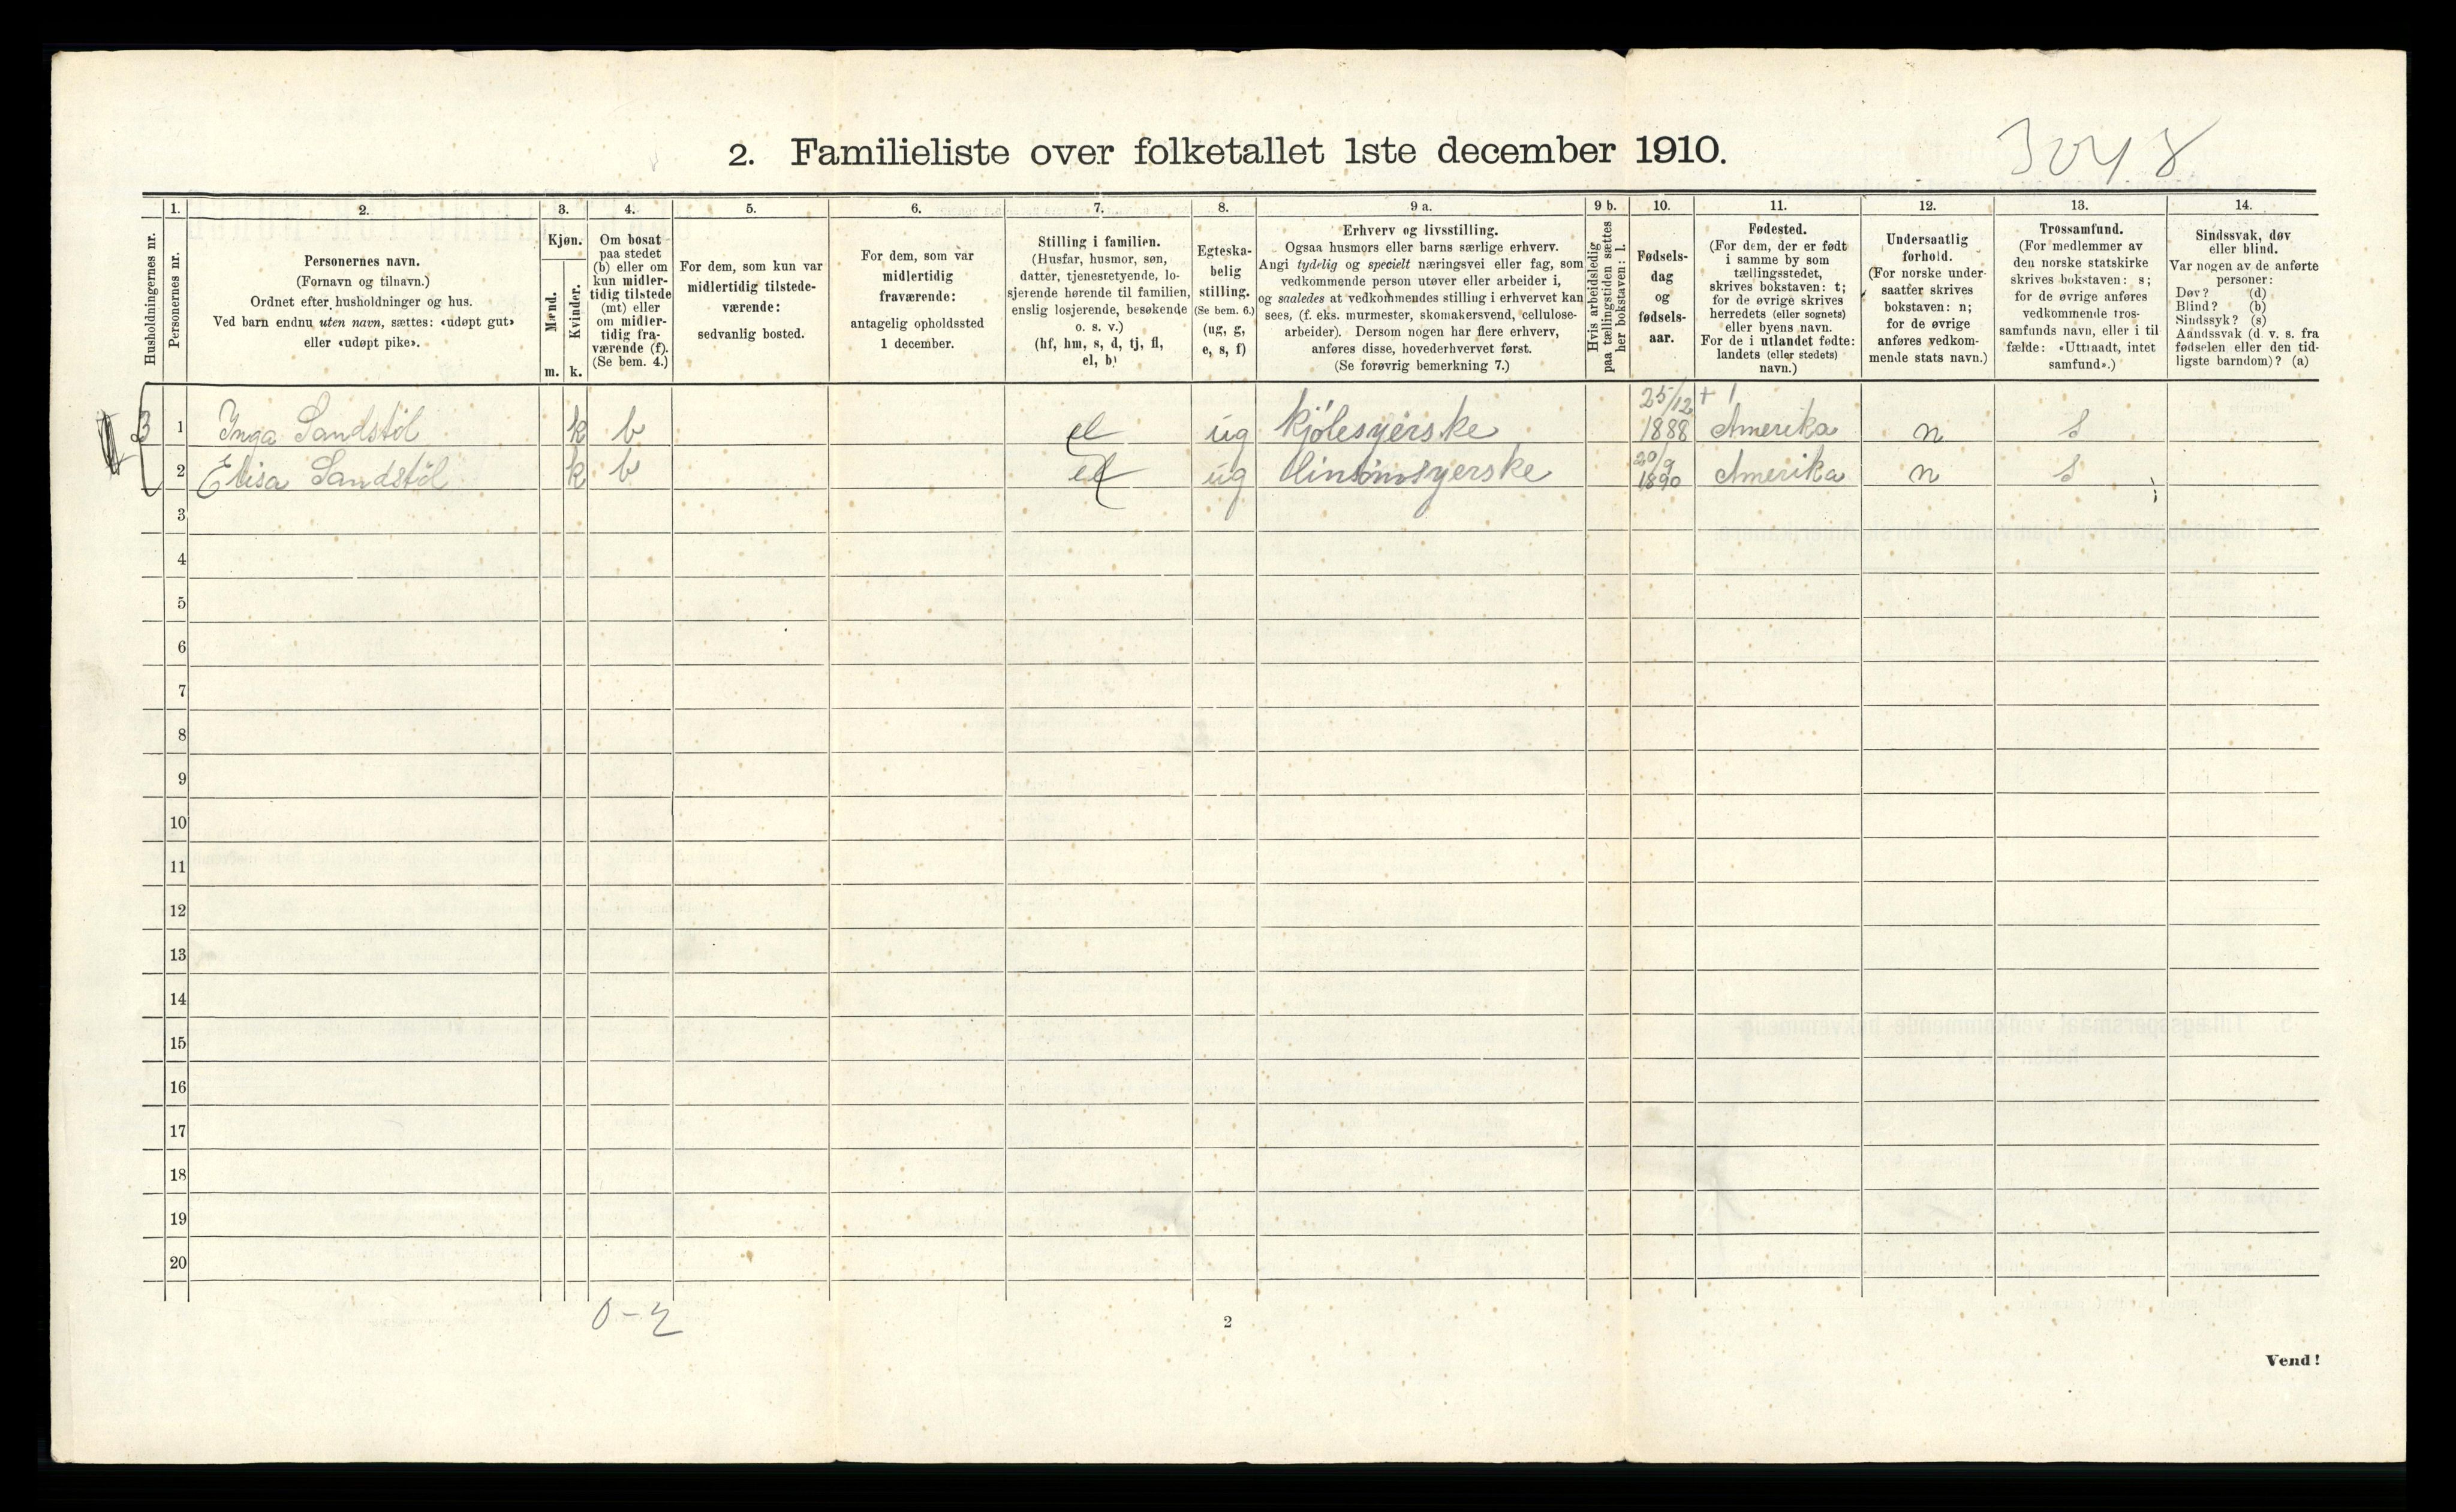 2. Familieliste over folketallet 1ste december 1910.
3048
Husholdningernes nr.
1.
Personernes nr.
2.
Personernes navn.
(Fornavn og tilnavn.)
Ordnet efter husholdninger og hus.
Ved barn endnu uten navn, sættes: «udøpt gut»
eller «udøpt pike».
3.
Kjøn.
Mænd.
Kvinder.
m. k.
4.
Om bosat
paa stedet
(b) eller om
kun midler-
tidig tilstede
(mt) eller
om midler-
tidig fra-
værende (f).
(Se bem. 4.)
5.
For dem, som kun var
midlertidig tilstede-
værende:
sedvanlig bosted.
6.
For dem, som var
midlertidig
fraværende:
antagelig opholdssted
1 december.
7.
Stilling i familien.
(Husfar, husmor, søn,
datter, tjenestetyende, lo-
sjerende hørende til familien,
enslig losjerende, besøkende
o. s. v.)
(hf, hm, s, d, tj, fl,
el, b)
8.
Egteska-
belig
stilling.
(Se bem. 6.)
(ug, g,
e, s, f)
9 a.
Erhverv og livsstilling.
Ogsaa husmors eller barns særlige erhverv.
Angi tydelig og specielt næringsvei eller fag, som
vedkommende person utøver eller arbeider i,
og saaledes at vedkommendes stilling i erhvervet kan
sees, (f. eks. murmester, skomakersvend, cellulose-
arbeider). Dersom nogen har flere erhverv,
anføres disse, hovederhvervet først.
(Se forøvrig bemerkning 7.)
9 b.
Hvis arbeidsledig
paa tællingstiden sættes
her bokstaven: l.
10.
Fødsels-
dag
og
fødsels-
aar.
11.
Fødested.
(For dem, der er født
i samme by som
tællingsstedet,
skrives bokstaven: t;
for de øvrige skrives
herredets (eller sognets)
eller byens navn.
For de i utlandet fødte:
landets (eller stedets)
navn.)
12.
Undersaatlig
forhold.
(For norske under-
saatter skrives
bokstaven: n;
for de øvrige
anføres vedkom-
mende stats navn.)
13.
Trossamfund.
(For medlemmer av
den norske statskirke
skrives bokstaven: s;
for de øvrige anføres
vedkommende tros-
samfunds navn, eller i til-
fælde: «Uttraadt, intet
samfund».)
14.
Sindssvak, døv
eller blind.
Var nogen av de anførte
personer:
Døv? (d)
Blind? (b)
Sindssyk? (s)
Aandssvak (d. v. s. fra
fødselen eller den tid-
ligste barndom)? (a)
3 1 Inga Sandstöl k b el ug kjölesyerske 25/12 1888 + 1 Amerika n s
2 Elisa Sandstöl k b el ug 20/9 1890 Amerika n s
3
4
5
6
7
8
9
10
11
12
13
14
15
16
17
18
19
20
0-2
2
Vend!